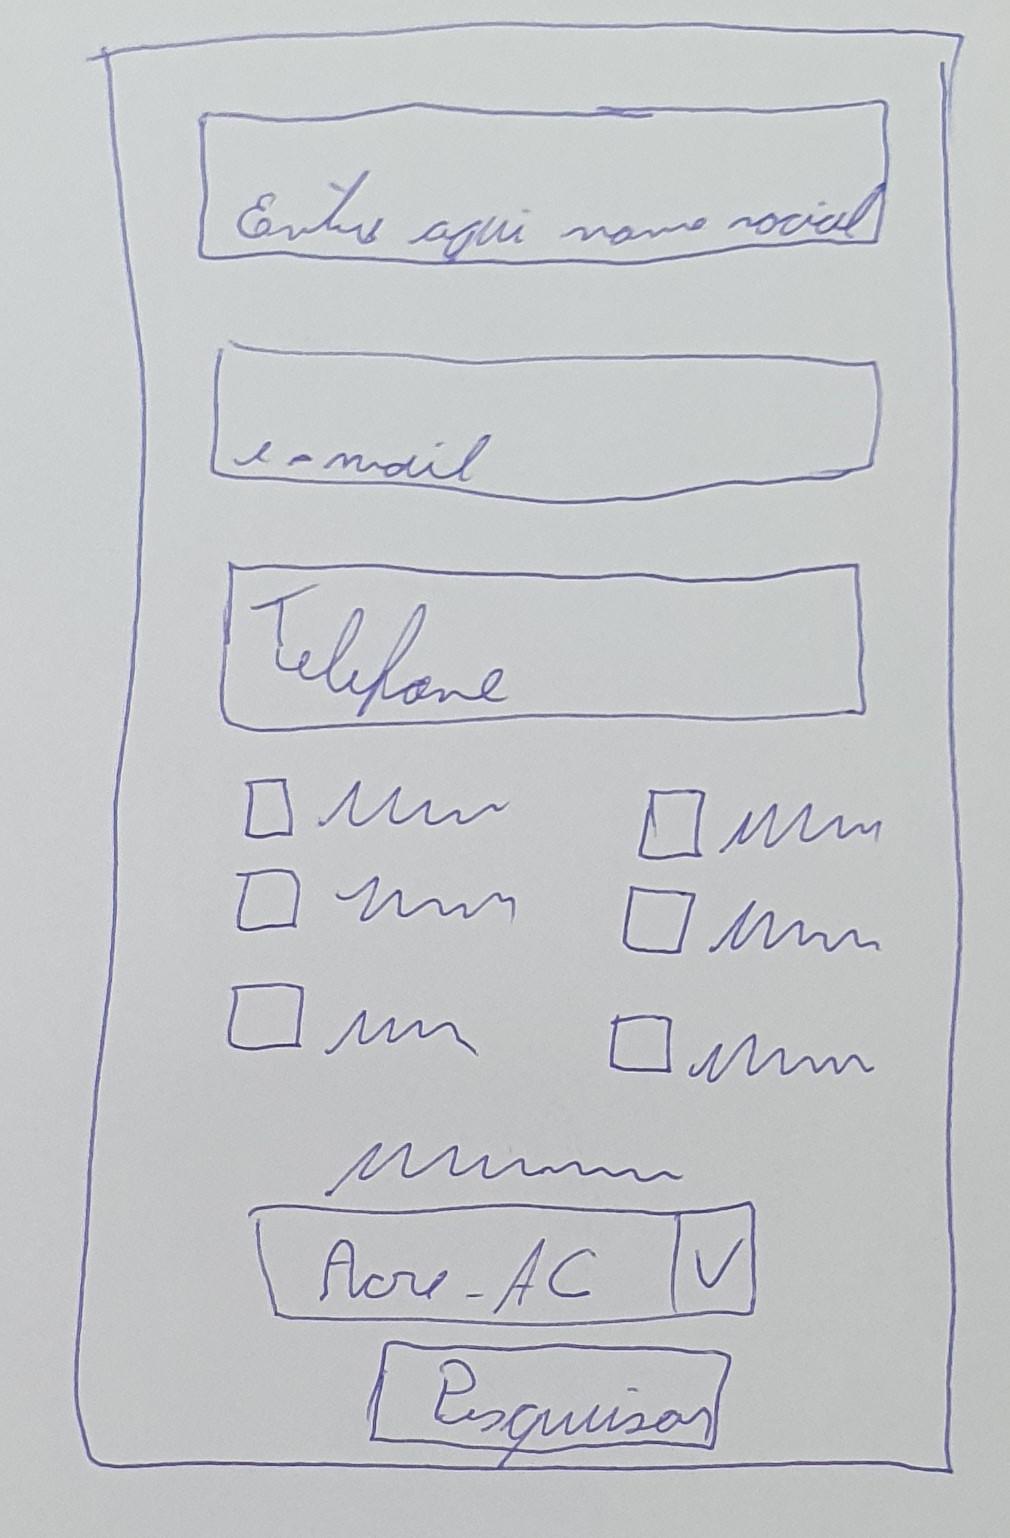 Entre aqui nome social
e-mail
Telefone
Acre-AC
Pesquisar